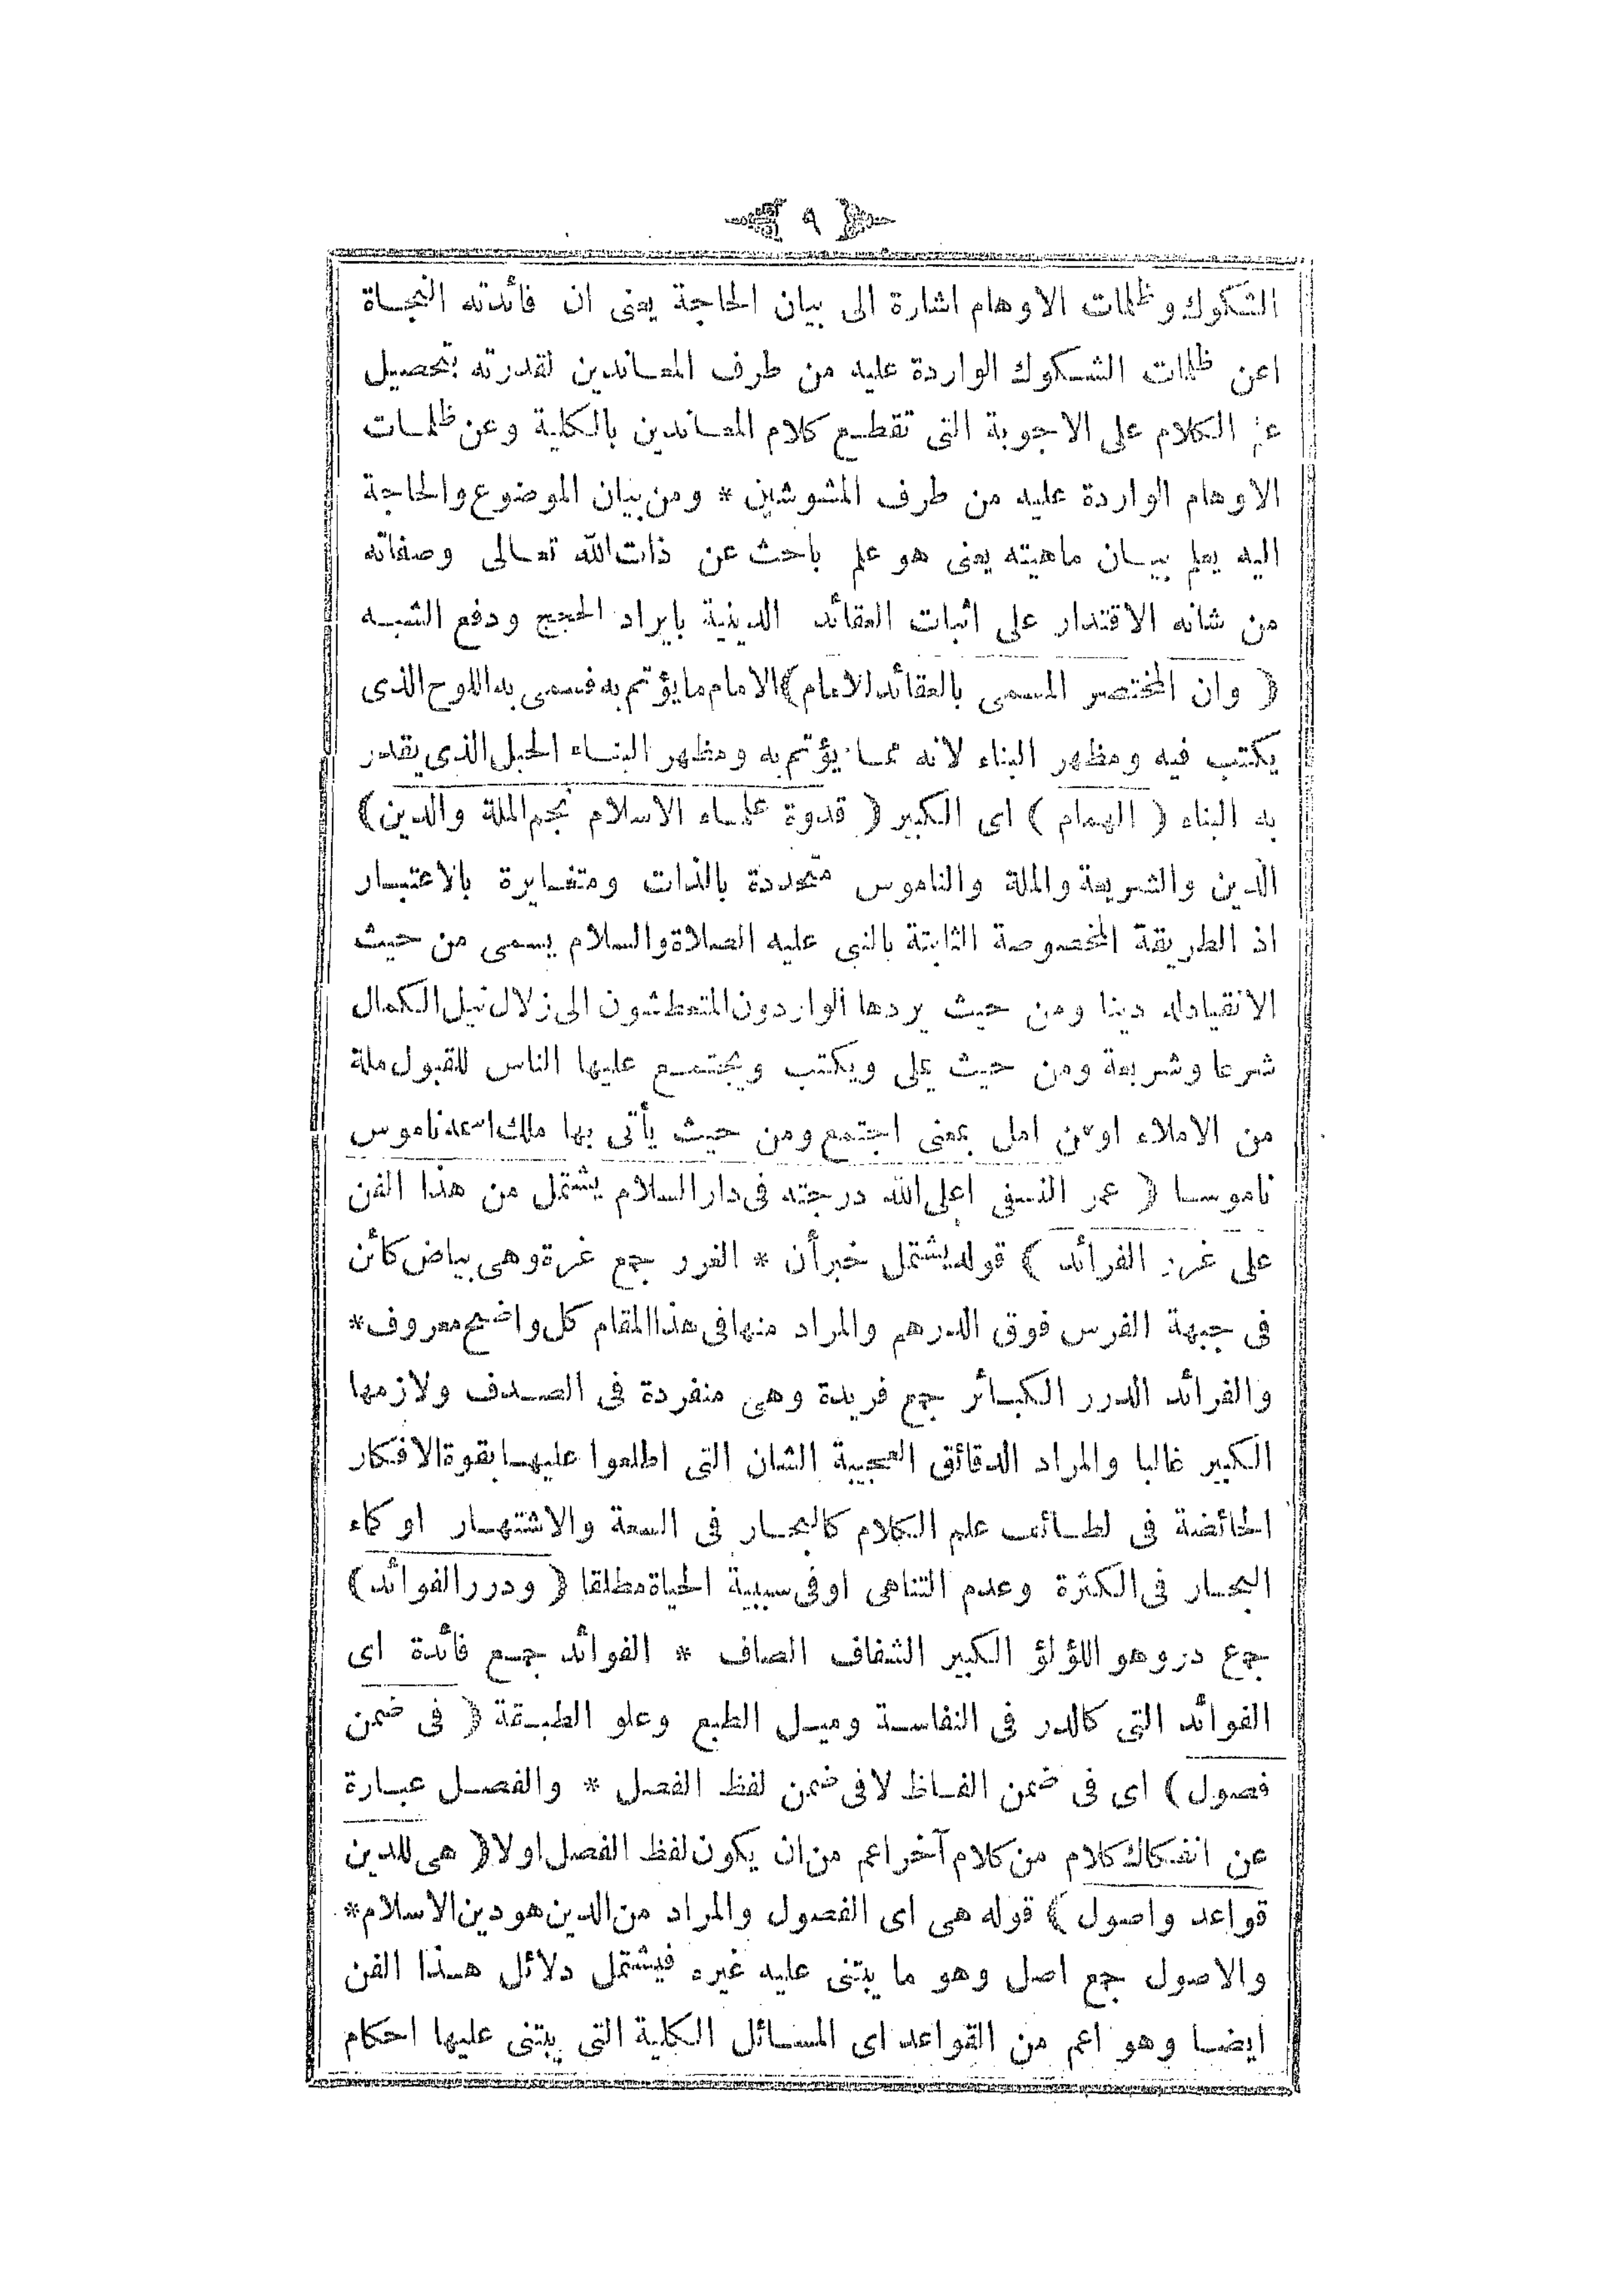 ٩
الشكوك وظلمات الاوهام اشارة الى بيان الحاجة يعنى ان فائدته النجاة
اعن ظلمات الشكوك الواردة عليه من طرف المعاندين لقدرته بتحصيل
علم الكلام على الاجوبة التى تقطع كلام المعاندين بالكلية وعن ظلمات
الاوهام الواردة عليه من طرف المشوشين * ومن بيان الموضوع والحاجة
اليه يعلم بيان ماهيته يعنى هو علم باحث عن ذات الله تعالى وصفاته
من شانه الاقتدار على اثبات العقائد الدينية بايراد الحجج ودفع الشبه
( وان المختصر المسمى بالعقائد للامام ) الامام ما يؤتم به فسمى به اللوح الذى
يكتب فيه ومظهر البناء لانه مما يؤتم به ومظهر البناء الحبل الذى يقدر
به البناء ( الهمام ) اى الكبير ( قدوة علماء الاسلام نجم الملة والدين )
الدين والشريعة والملة والناموس متحددة بالذات ومتغايرة بالاعتبار
اذ الطريقة المخصوصة الثابتة بالنبى عليه الصلاة والسلام يسمى من حيث
الانقياد له دينا ومن حيث يردها الواردون المتعطشون الى زلال نيل الكمال
شرعا وشريعة ومن حيث يملى ويكتب ويجتمع عليها الناس للقبول ملة
من الاملاء او من امل بمعنى اجتمع ومن حيث يأتى بها ملك اسمه ناموس
ناموسا ( عمر النسفى اعلى الله درجته فى دار السلام يشتمل من هذا الفن
على غرر الفرائد ) قوله يشتمل خبر أن * الغرر جمع غرة وهى بياض كائن
فى جبهة الفرس فوق الدرهم والمراد منها فى هذا المقام كل واضح معروف *
والفرائد الدرر الكبائر جمع فريدة وهى منفردة فى الصدف ولازمها
الكبير غالبا والمراد الدقائق العجيبة الشان التى اطلعوا عليها بقوة الافكار
الخائضة فى لطائف علم الكلام كالبحار فى السعة والاشتهار او كماء
البحار فى الكثرة وعدم التناهى او فى سببية الحياة مطلقا ( ودرر الفوائد )
جمع در وهو اللؤلؤ الكبير الشفاف الصاف * الفوائد جمع فائدة اى
الفوائد التى كالدر فى النفاسة وميل الطبع وعلو الطبقة ( فى ضمن
فصول ) اى فى ضمن الفاظ لا فى ضمن لفظ الفصل * والفصل عبارة
عن انفكاك كلام من كلام آخر اعم من ان يكون لفظ الفصل اولا ( هى للدين
قواعد واصول ) قوله هى اى الفصول والمراد من الدين هو دين الاسلام *
والاصول جمع اصل وهو ما يبتنى عليه غيره فيشتمل دلائل هذا الفن
ايضا وهو اعم من القواعد اى المسائل الكلية التى يبتنى عليها احكام